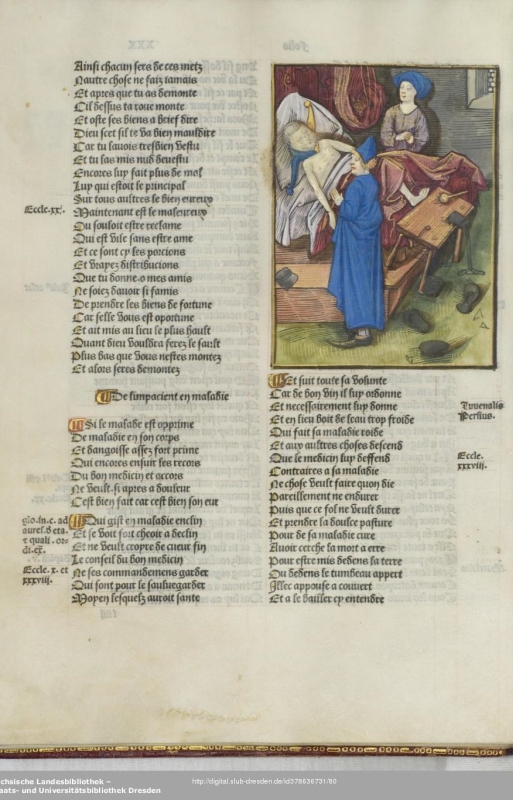 Ainsi chacun sers de ces metz
Nautre chose ne faiz iamais
Et apres que tu as demonte
Cil dessus ta roue monte
Et oste ses biens a brief dire
Dieu scet sil te va bien mauldire
Car tu lauois tresbien vestu
Et tu las mis nud deuestu
Encores luy fait plus de mal
Luy qui estoit le principal
Sur tous aultres le bien eureux
Eccle. xx.
Maintenant est le maleureux
Ou souloit estre reclame
Qui est vile sans estre ame
Et ce sont cy les porcions
Et vrayez distribucions
Que tu donne o mes amis
Ne soiez dauoir si famis
De prendre les biens de fortune
Car selle vous est oportune
Et ait mis au lieu le plus hault
Quant dieu vouldra ferez le sault
Plus bas que vous nestes montez
Et alors serez demontez
De limpacient en maladie
Si le malade est opprime
De maladie en son corps
Et dangoisse assez fort prime
Qui encores ensuit les recors
Du bon medicin et accors
Ne veult si apres a douleur
Cest bien fait car cest bien son eur
glo. in. c. ad
aures. & eta.
& quali. or.
di. ex.
Eccle. x. et
xxxviii.
Qui gist en maladie enclin
Et se voit fort cheoir a declin
Et ne veult croyre de cueur fin
Le conseil du bon medicin
Ne ses commandemens garder
Qui sont pour le sauluegarder
Moyen lesquelz auroit sante
Et suit toute sa volunte
Car de bon vin il luy ordonne
Et necessairement luy donne
Et en lieu boit de leau trop froide
Qui fait sa maladie roide
Et aux aultres choses descend
Que le medicin luy deffend
Contraires a sa maladie
Ne chose veult faire quon die
Pareillement ne endurer
Puis que ce fol ne veult durer
Et prendre la doulce pasture
Pour de sa maladie cure
Auoir cerche la mort a erre
Pour estre mis dedens la terre
Ou dedens le tumbeau appert
Illec appouse a couuert
Et a le bailler cy entendre
Iuuenalis
Persius.
Eccle.
xxxviii.
chsische Landesbibliothek –
aats- und Universitätsbibliothek Dresden
http://digital.slub-dresden.de/id378636731/80